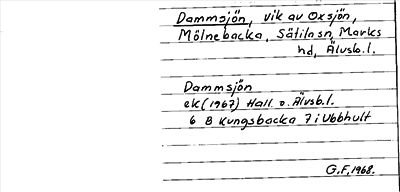 Dammsjön, vik av Oxsjön,
Mölnebacka, Sätila sn, Marks
hd, Älvsb.l.
Dammsjön
ek(1967) Hall. o. Älvsb.l.
6 B Kungsbacka 7 i Ubbhult
G.F, 1968.